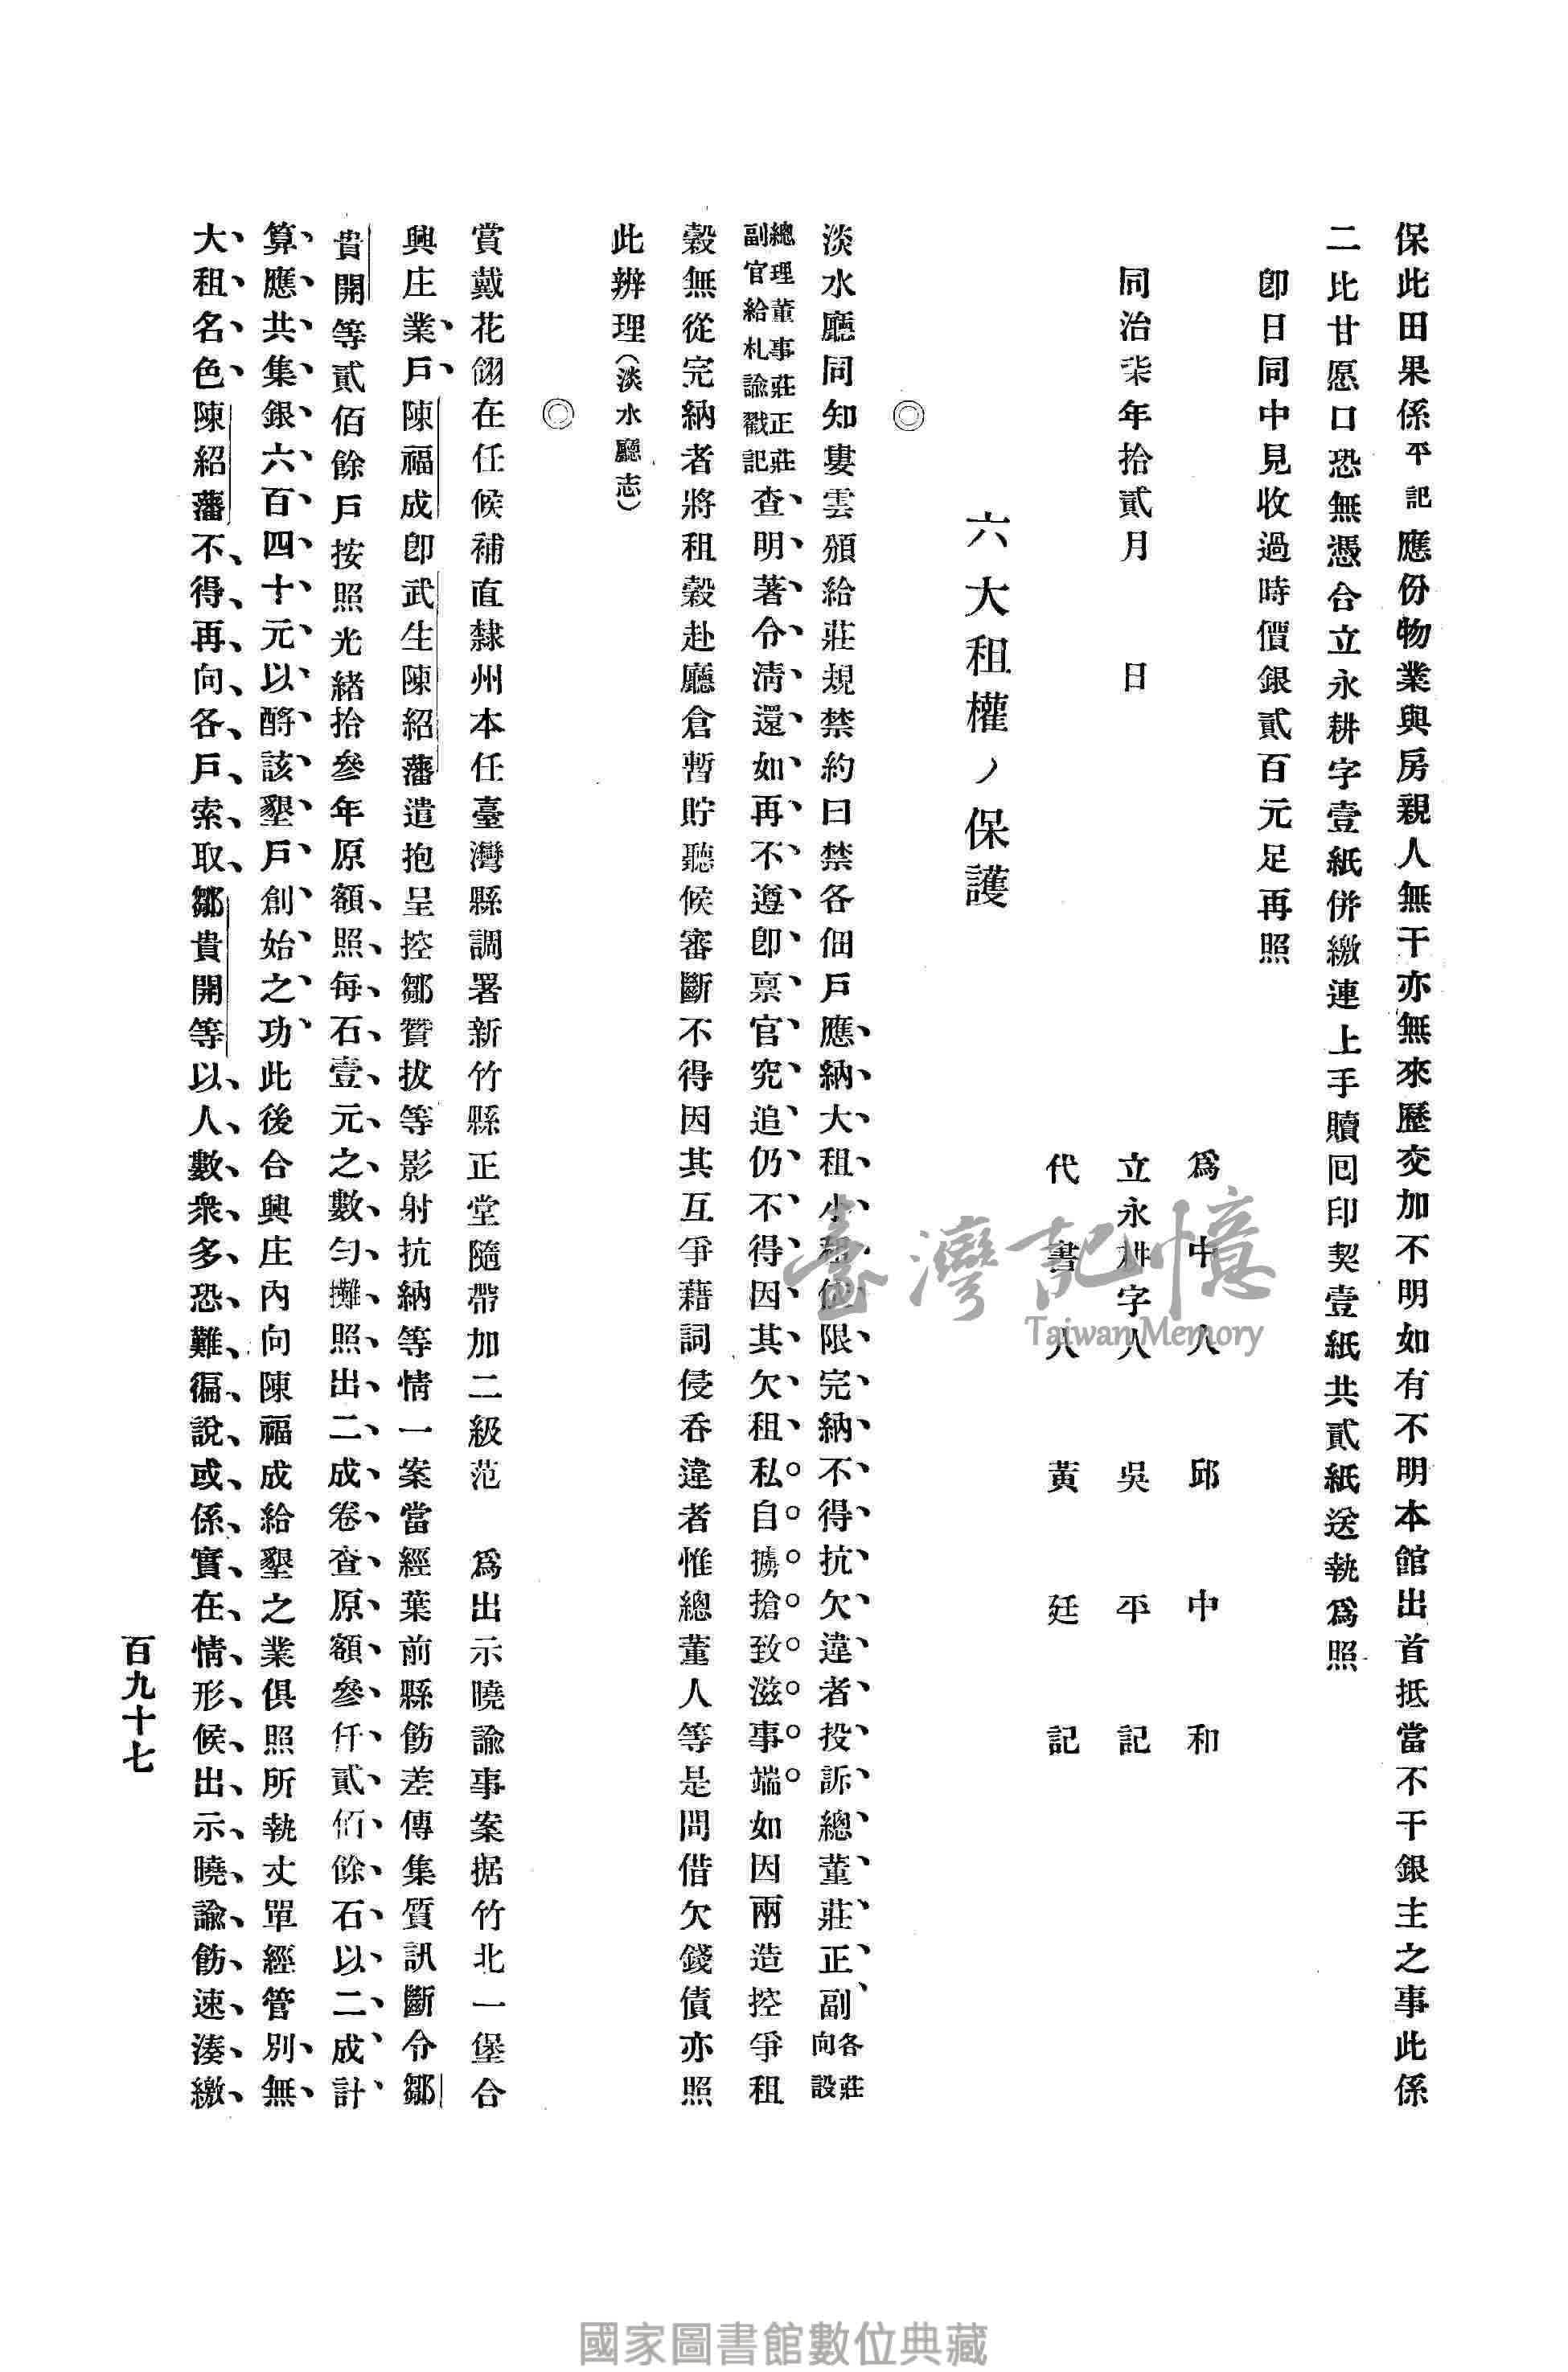 保此田果係平記應份物業與房親人無干亦無來歷交加不明如有不明本館出首抵當不干銀主之事此係
二比甘愿口恐無憑合立永耕字壹紙併繳連上手贖囘印契壹紙共貳紙送執爲照
卽日同中見收過時價銀貳百元足再照
爲中人邱中和
同治柒年拾貳月　日　立永耕字人吳平記
代書人黃廷記
六大租權ノ保護
◎
淡水廳同知婁雲頒給莊規禁約曰禁各佃戶應、納、大、租、小、租、依、限、完、納、不、得、抗、欠、違、者、投、訴、總、董、莊、正、副、各莊向設
總理董事莊正莊副官給札諭戳記查、明、著、令、清、還、如、再、不、遵、卽、禀、官、究、追、仍、不、得、因、其、欠、租、私○自○擄○搶○致○滋○事○端○如因兩造控爭租
穀無從完納者將租穀赴廳倉暫貯聽候審斷不得因其互爭藉詞侵吞違者惟總董人等是問借欠錢債亦照
此辨理（淡水廳志）
◎
賞戴花翎在任候補直隸州本任臺灣縣調署新竹縣正堂隨帶加二級范　爲出示曉諭事案据竹北一堡合
興庄業、戶、陳福成卽武生陳紹藩遣抱呈控鄒贊拔等影射抗納等情一案當經葉前縣飭差傳集質訊斷令鄒
貴開等貳佰餘戶按照光緒拾參年原額、照、每、石、壹、元、之、數、勻、攤、照、出、二、成、卷、查、原、額、參、仟、貳、佰、餘、石、以、二、成、計、
算、應、共、集、銀、六、百、四、十、元、以、酹、該、墾、戶、創、始、之、功、此後合興庄內向陳福成給墾之業俱照所執丈單經管別、無、
大、租、名、色、陳紹藩不、得、再、向、各、戶、索、取、鄒貴開等以、人、數、衆、多、恐、難、徧、說、或、係、實、在、情、形、候、出、示、曉、諭、飭、速、湊、繳、
百九十七
臺灣記憶
Taiwan Memory
國家圖書館數位典藏